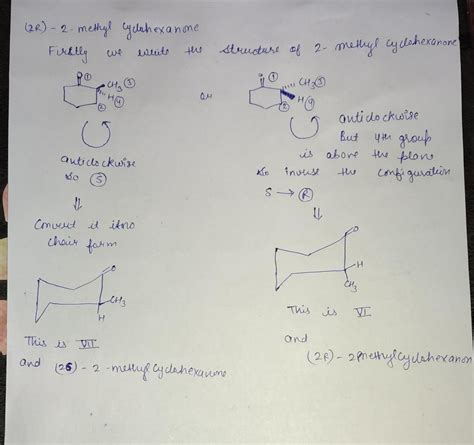 (2R) - 2 - methyl cyclohexanone
Firstly we write the structure of 2 - methyl cyclohexanone
O ①
CH₃ ③
H ④
②
or
O ①
CH₃ ③
H ④
②
anticlockwise
so Ⓢ
anticlockwise
But 4th group
is above the plane
so inverse the configuration
S → Ⓡ
⇓
Convert it into
chair form
⇓
O
CH₃
H
O
H
CH₃
This is VII
and (2S) - 2 - methyl cyclohexanone
This is VI
and
(2R) - 2 methylcyclohexanon